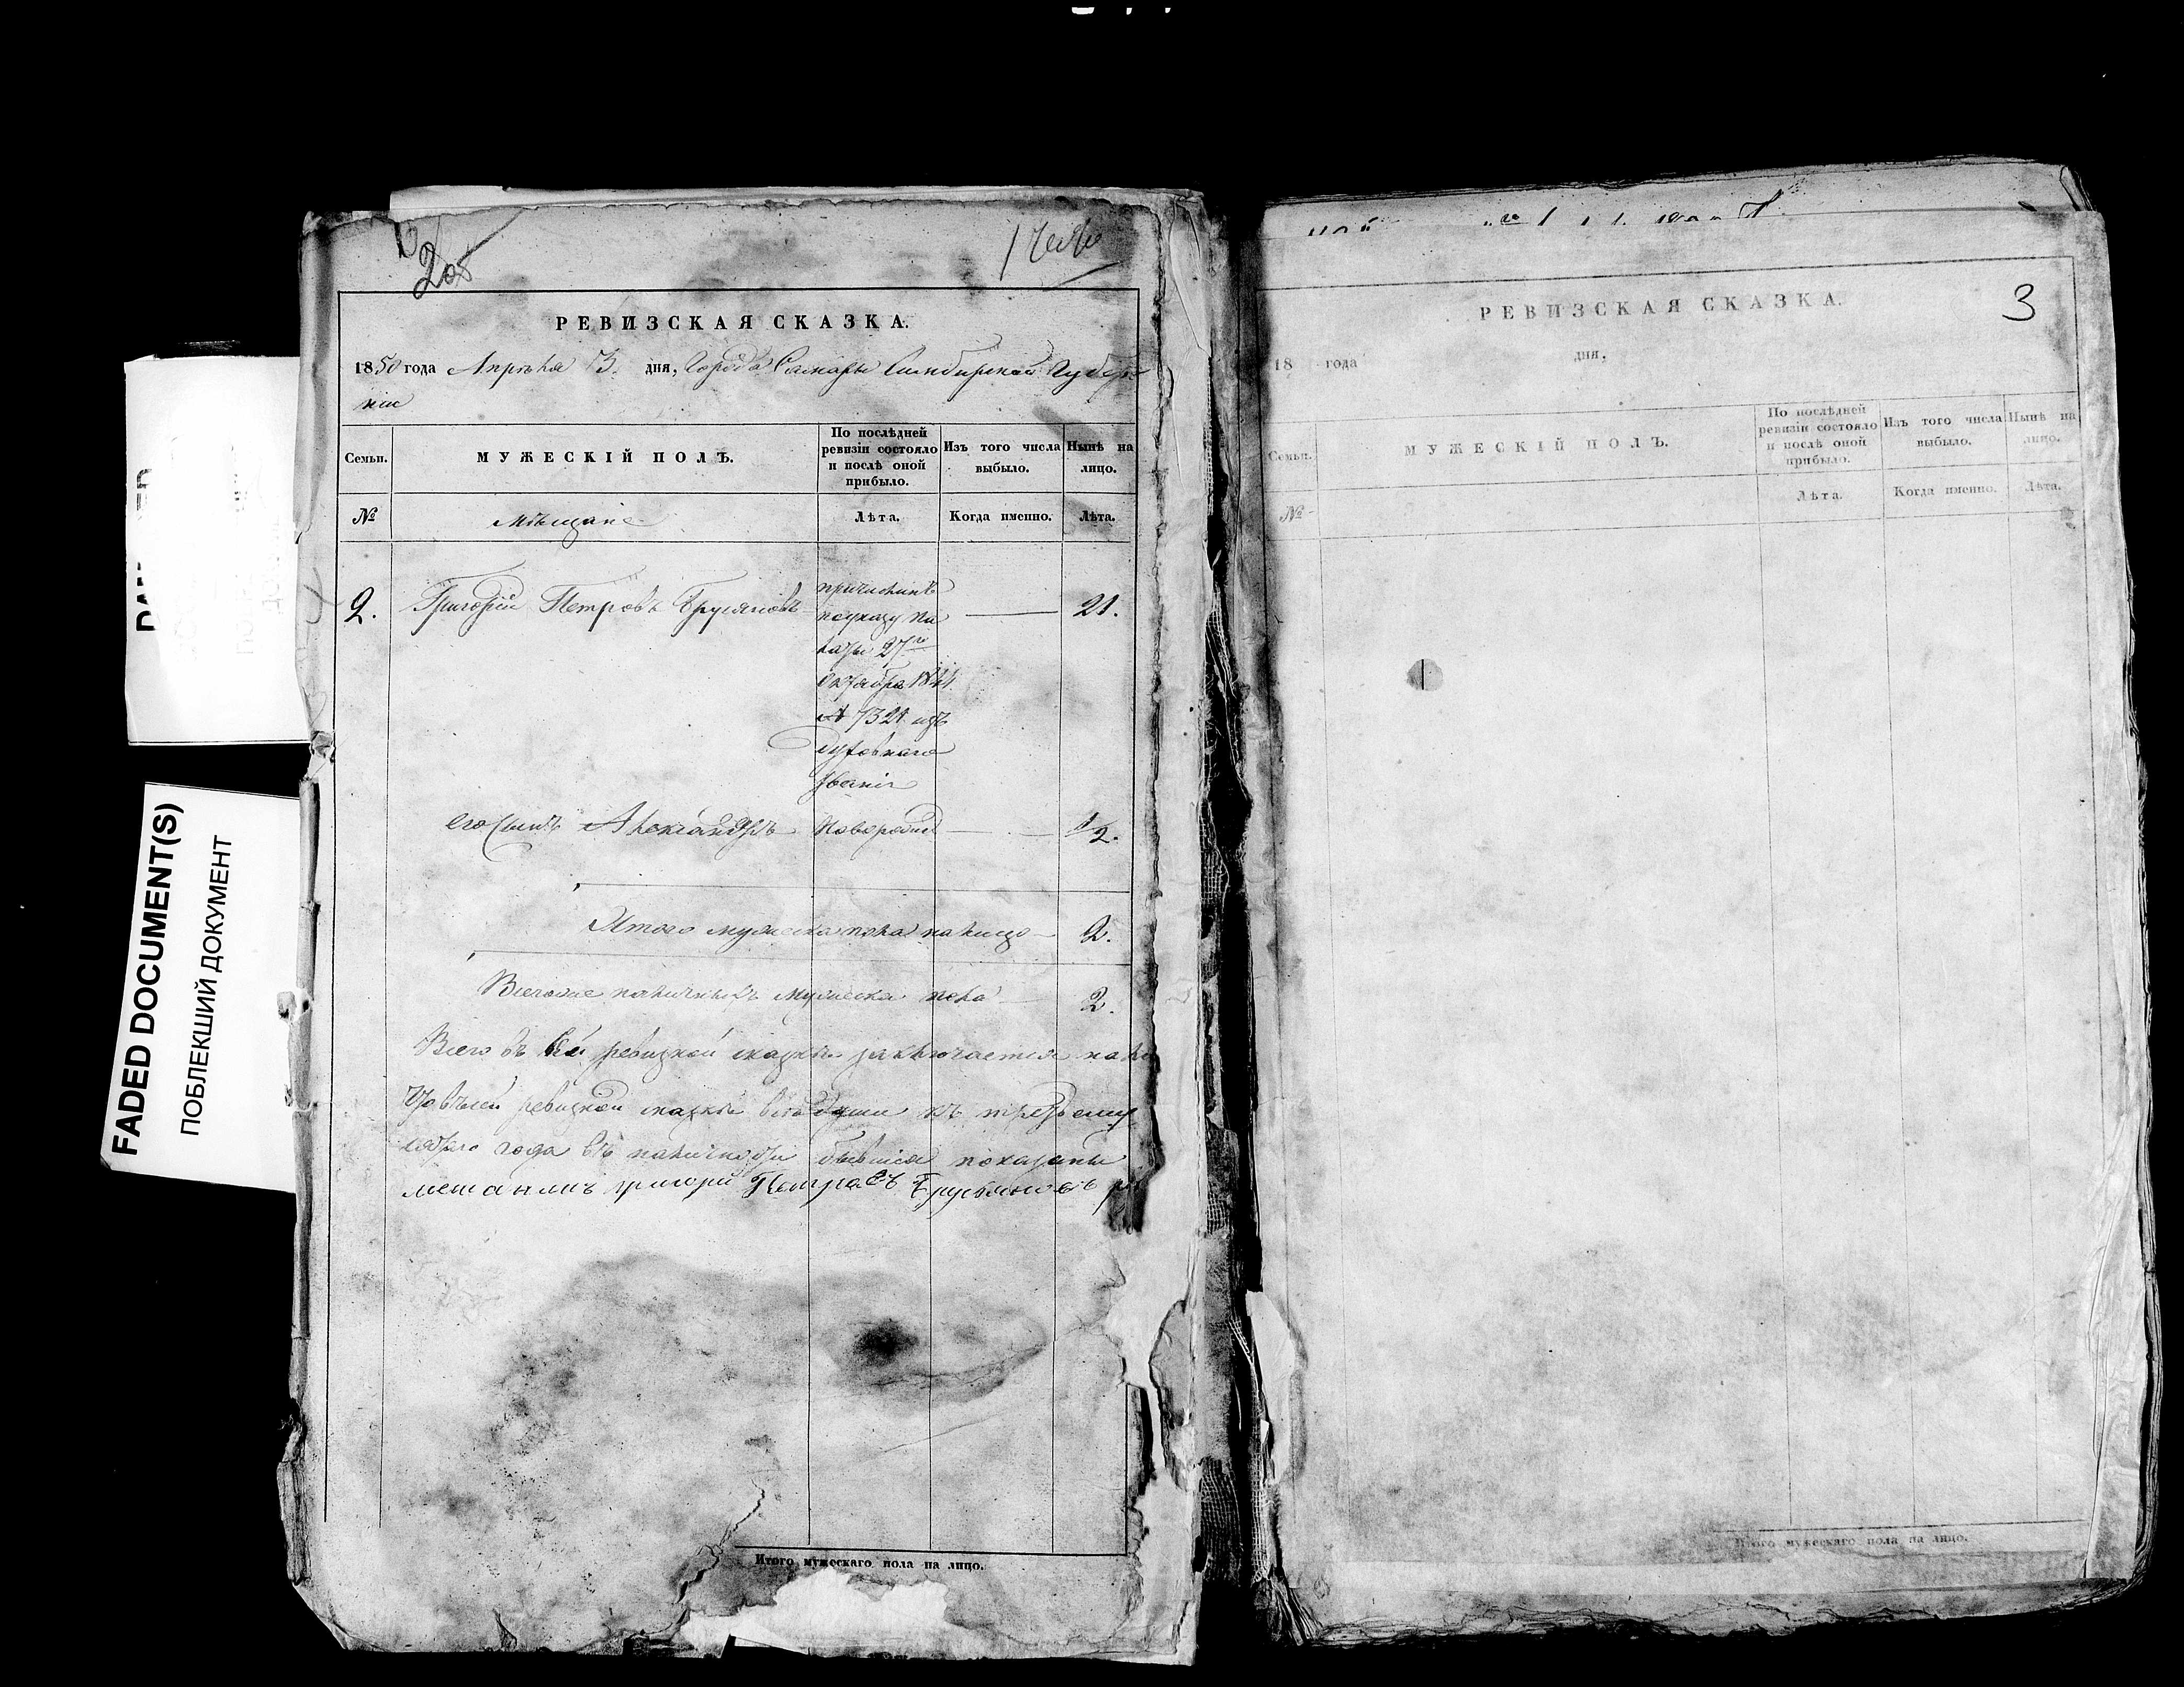 2об
РЕВИЗСКАЯ СКАЗКА.
1850 года Апрѣля 13. дня, Города Самары Симбирской Губер
ніи
Семьи.
МУЖЕСКІЙ ПОЛЪ.
По послѣдней
ревизіи состояло
и послѣ оной
прибыло.
Изъ того числа
выбыло.
Нынѣ на
лицо.
№
Мѣщане
Лѣта.
Когда именно.
Лѣта.
2.
Григорій Петровъ Брусяновъ
причисленъ
по указу Па
латы 27го
Октября 1844
№ 7321 изъ
духовнаго
званія
21.
его Сынъ Александръ
новорожд
1/2.
Итого мужеска пола на лицо
2.
Всего наличныхъ мужеска пола
2.
Всего въ сей ревизкой сказкѣ заключается на
ревизкой сказкѣ всѣ души къ
года въ наличности бывшія показаны
мещанинъ григори Петровъ Брусяновъ
Итого мужескаго пола на лицо.
FADED DOCUMENT(S)
ПОБЛЕКШИЙ ДОКУМЕНТ
3
РЕВИЗСКАЯ СКАЗКА.
18 года дня,
Семьи.
МУЖЕСКІЙ ПОЛЪ.
По послѣдней
ревизіи состояло
и послѣ оной
прибыло.
Изъ того числа
выбыло.
Нынѣ на
лицо.
№
Лѣта.
Когда именно.
Лѣта.
Итого мужескаго пола на лицо.